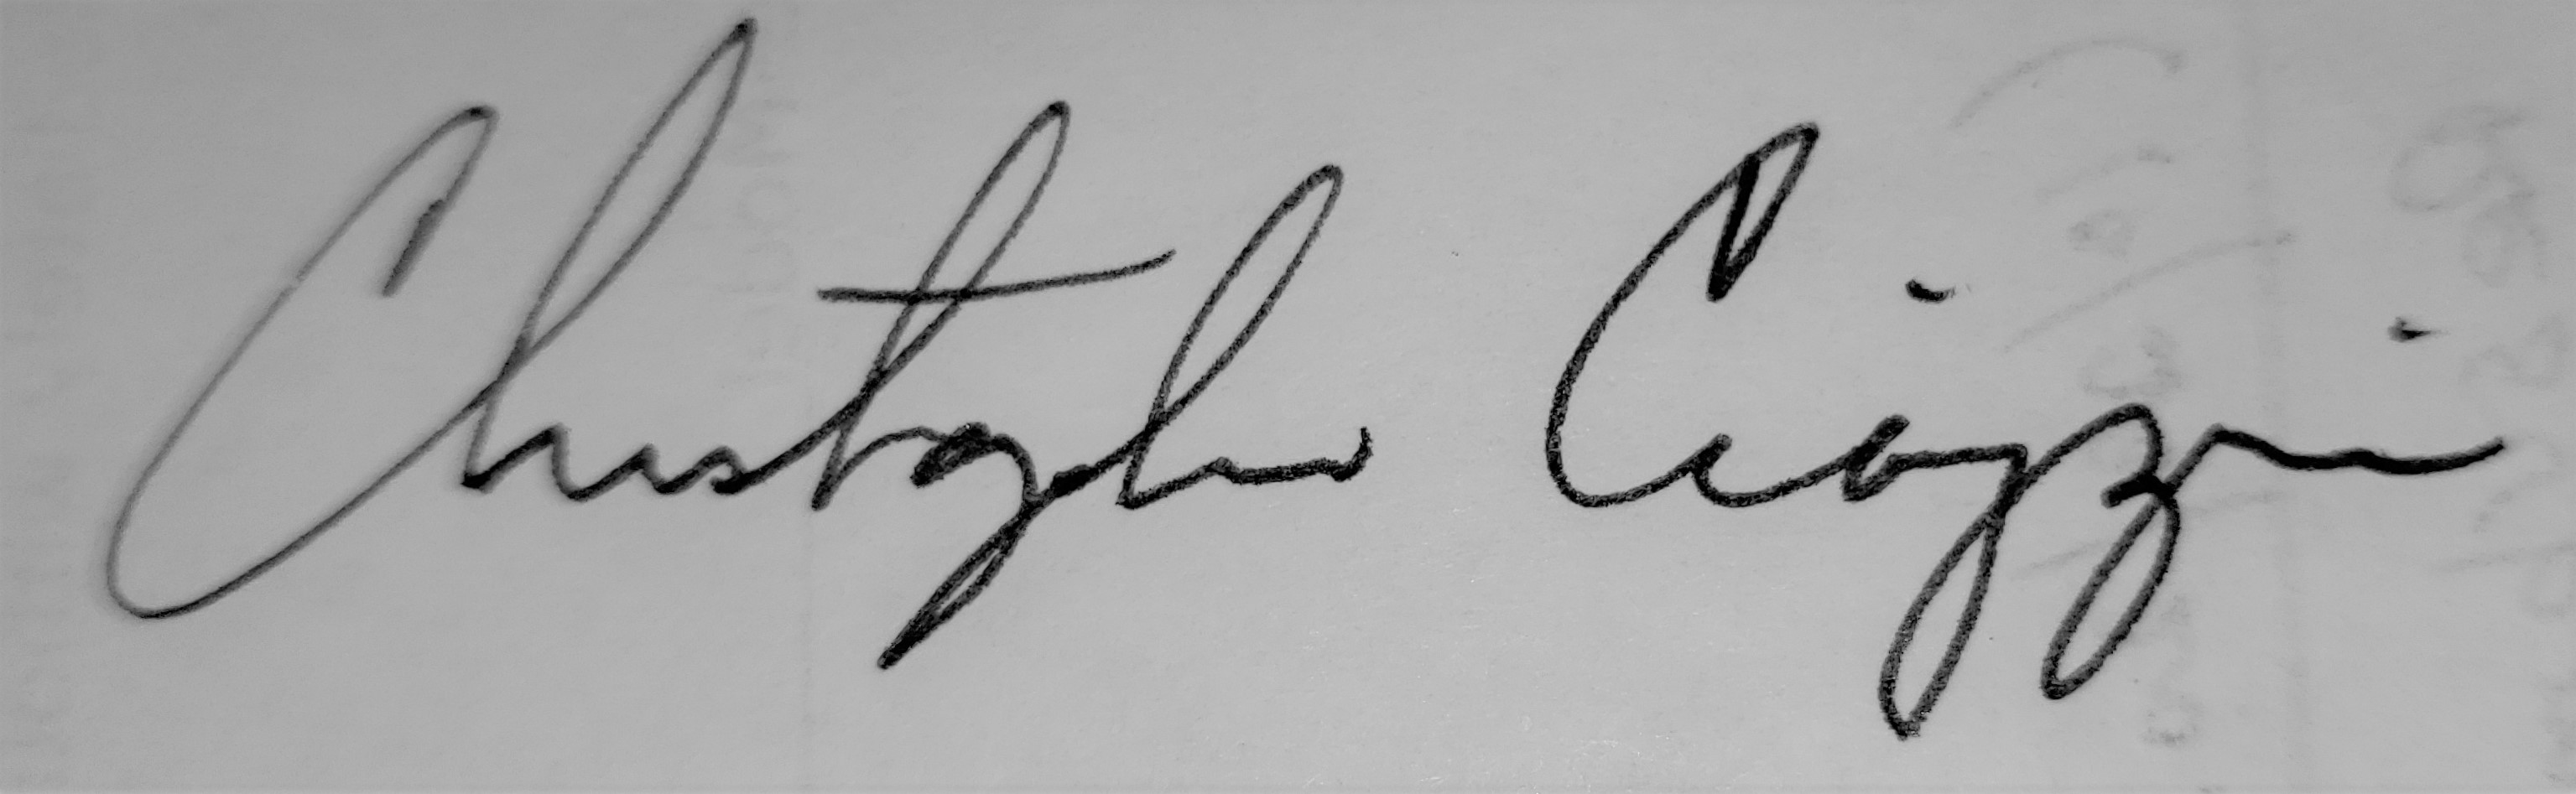 Christopher Ciozzi